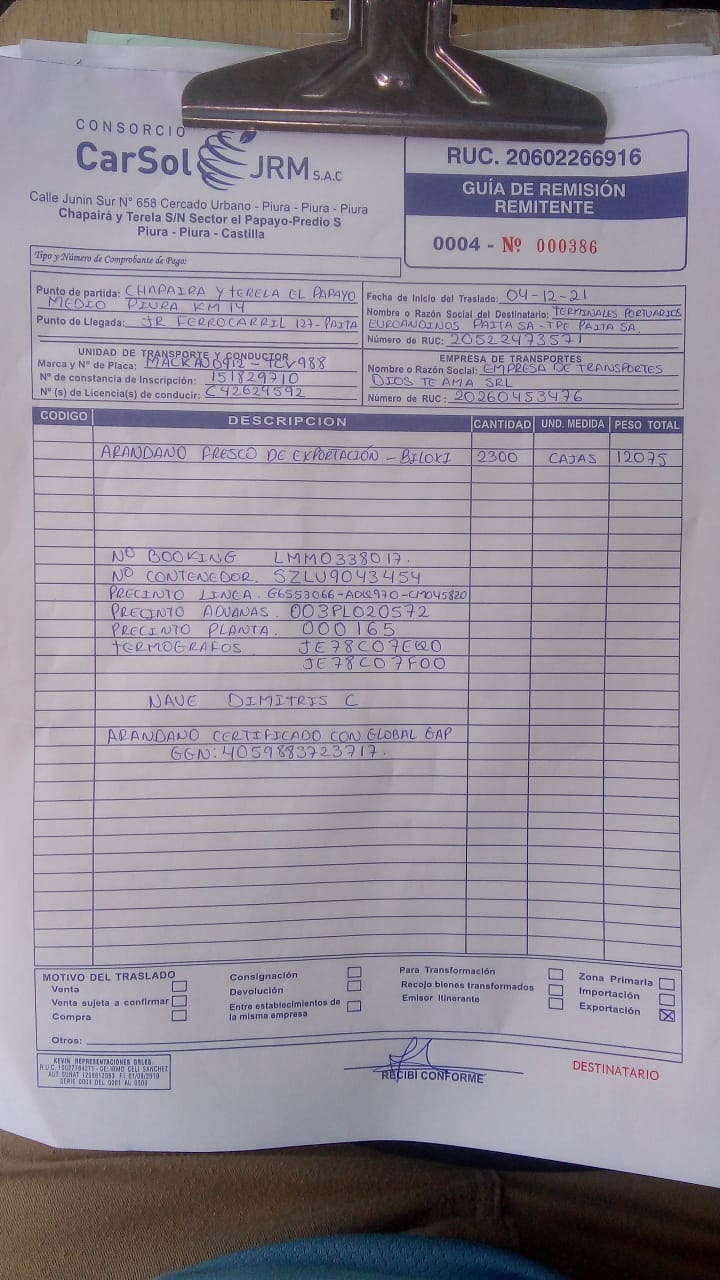 CONSORCIO
CarSol JRM S.A.C
Calle Junin Sur N° 658 Cercado Urbano - Piura - Piura - Piura
Chapairá y Terela S/N Sector el Papayo-Predio S
Piura - Piura - Castilla
RUC. 20602266916
GUÍA DE REMISIÓN
REMITENTE
0004 - Nº 000386
Tipo y Número de Comprobante de Pago:
Punto de partida: CHAPAIRA Y TERELA EL PAPAYO
MEDIO PIURA KM 14
Punto de Llegada: JR FERROCARRIL 127-PAITA
Fecha de Inicio del Traslado: 04-12-21
Nombre o Razón Social del Destinatario: TERMINALES PORTUARIOS
EUROANDINOS PAITA SA - TPE PAITA SA.
Número de RUC: 20522473571
UNIDAD DE TRANSPORTE Y CONDUCTOR
Marca y N° de Placa: MACK - TCV988
N° de constancia de Inscripción: 151829710
N° (s) de Licencia(s) de conducir: C42624592
EMPRESA DE TRANSPORTES
Nombre o Razón Social: EMPRESA DE TRANSPORTES
DIOS TE AMA SRL
Número de RUC: 20260453476
CODIGO DESCRIPCION CANTIDAD UND. MEDIDA PESO TOTAL
ARANDANO FRESCO DE EXPORTACIÓN - BILOXI 2300 CAJAS 12075
NO BOOKING LMM0338017.
NO CONTENEDOR. SZLU9043454
PRECINTO LINEA. G6553066-ADQ970-CM045820
PRECINTO ADUANAS. 003PL020572
PRECINTO PLANTA. 000165
TERMOGRAFOS JE78C07EQ0
JE78C07F00
NAVE DIMITRIS C
ARANDANO CERTIFICADO CON GLOBAL GAP
GGN: 4059883723717.
MOTIVO DEL TRASLADO
Venta
Venta sujeta a confirmar
Compra
Consignación
Devolución
Entre establecimientos de
la misma empresa
Para Transformación
Recojo bienes transformados
Emisor Itinerante
Zona Primaria
Importación
Exportación X
Otros:
KEVIN REPRESENTACIONES GRLES.
R.U.C. 10027784271 - DE: IRMO CELI SANCHEZ
AUT. SUNAT F.I. 01/08/2019
SERIE 0004 DEL 0001 AL 0500
RECIBI CONFORME
DESTINATARIO